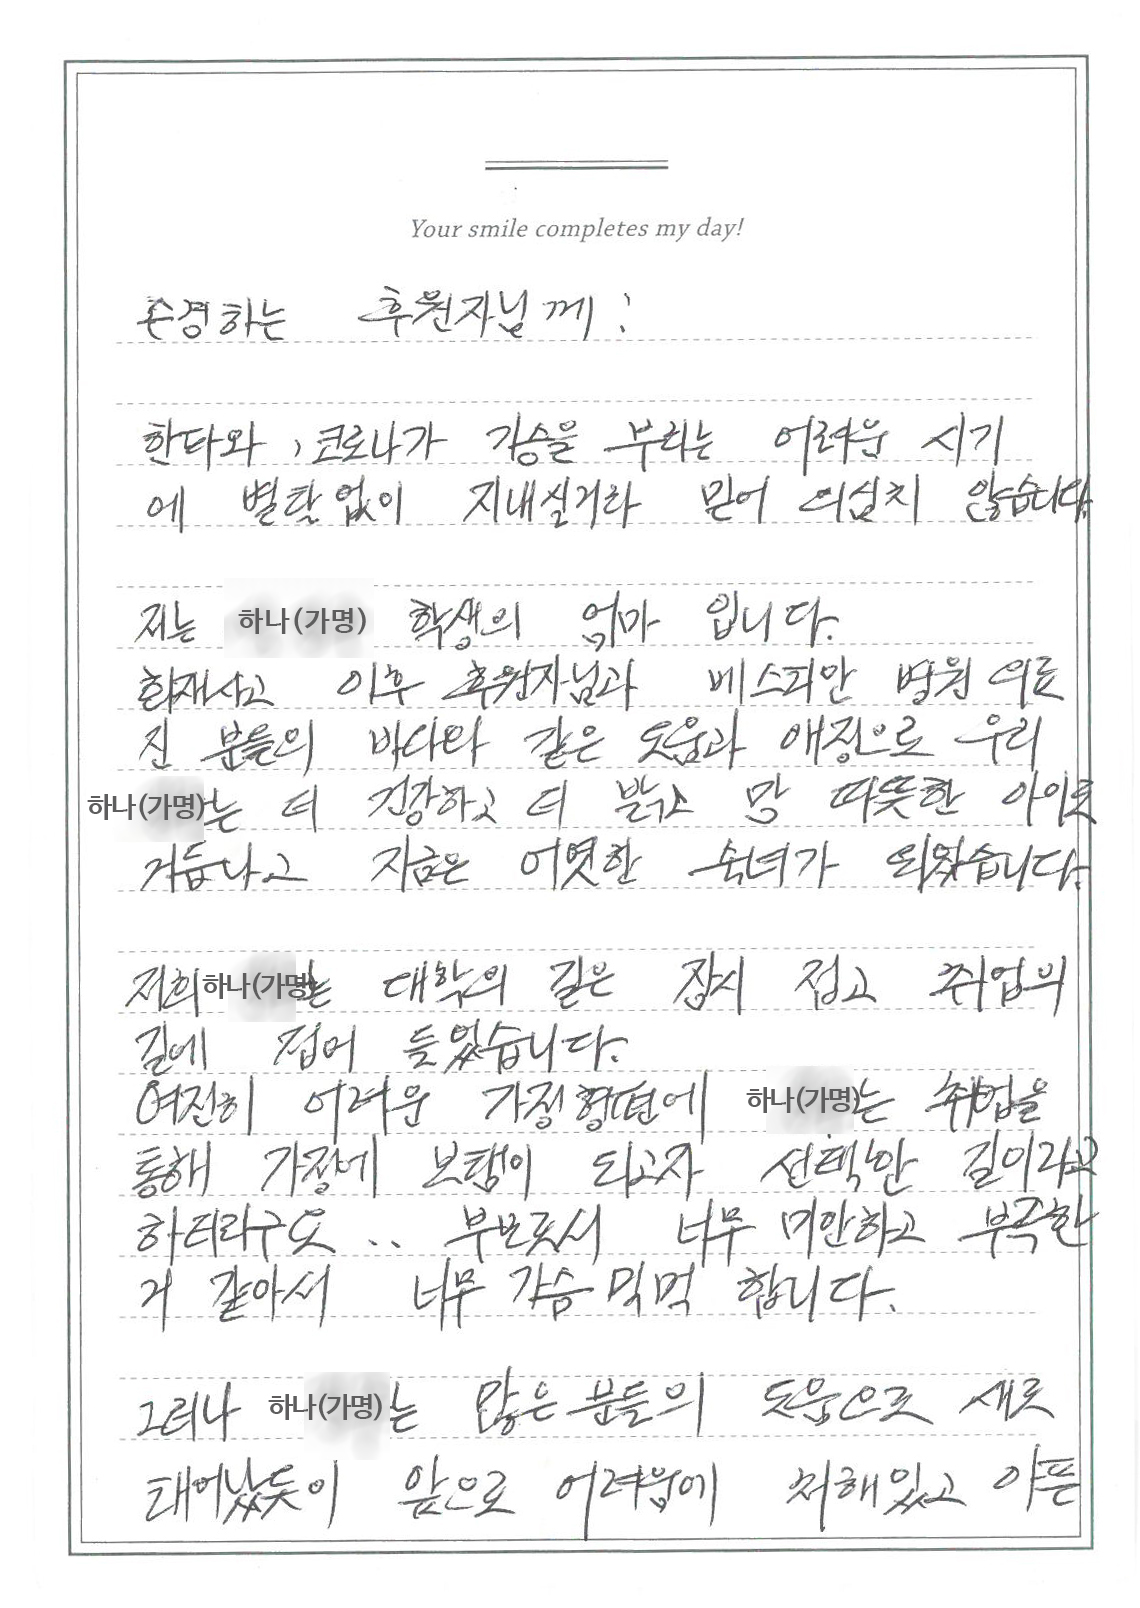 Your smile completes my day!
존경하는 후원자님께:
한타와, 코로나가 기승을 부리는 어려운 시기
에 별탈없이 지내실거라 믿어 의심치 않습니다.
저는 하나(가명) 학생의 엄마 입니다.
화재사고 이후 후원자님과 베스피안 병원 의료
진 분들의 바다와 같은 도움과 애정으로 우리
하나(가명)는 더 건강하고 더 밝고 맘 따뜻한 아이로
거듭나고 지금은 어엿한 숙녀가 되였습니다.
저희 하나(가명)는 대학의 길은 잠시 접고 취업의
길에 접어 들었습니다.
여전히 어려운 가정형편에 하나(가명)는 취업을
통해 가정에 보탬이 되고자 선택한 길이라고
하더라구요.. 부모로서 너무 미안하고 부족한
거 같아서 너무 가슴 먹먹 합니다.
그러나 하나(가명)는 많은 분들의 도움으로 새로
태어났듯이 앞으로 어려움에 처해있고 아픈